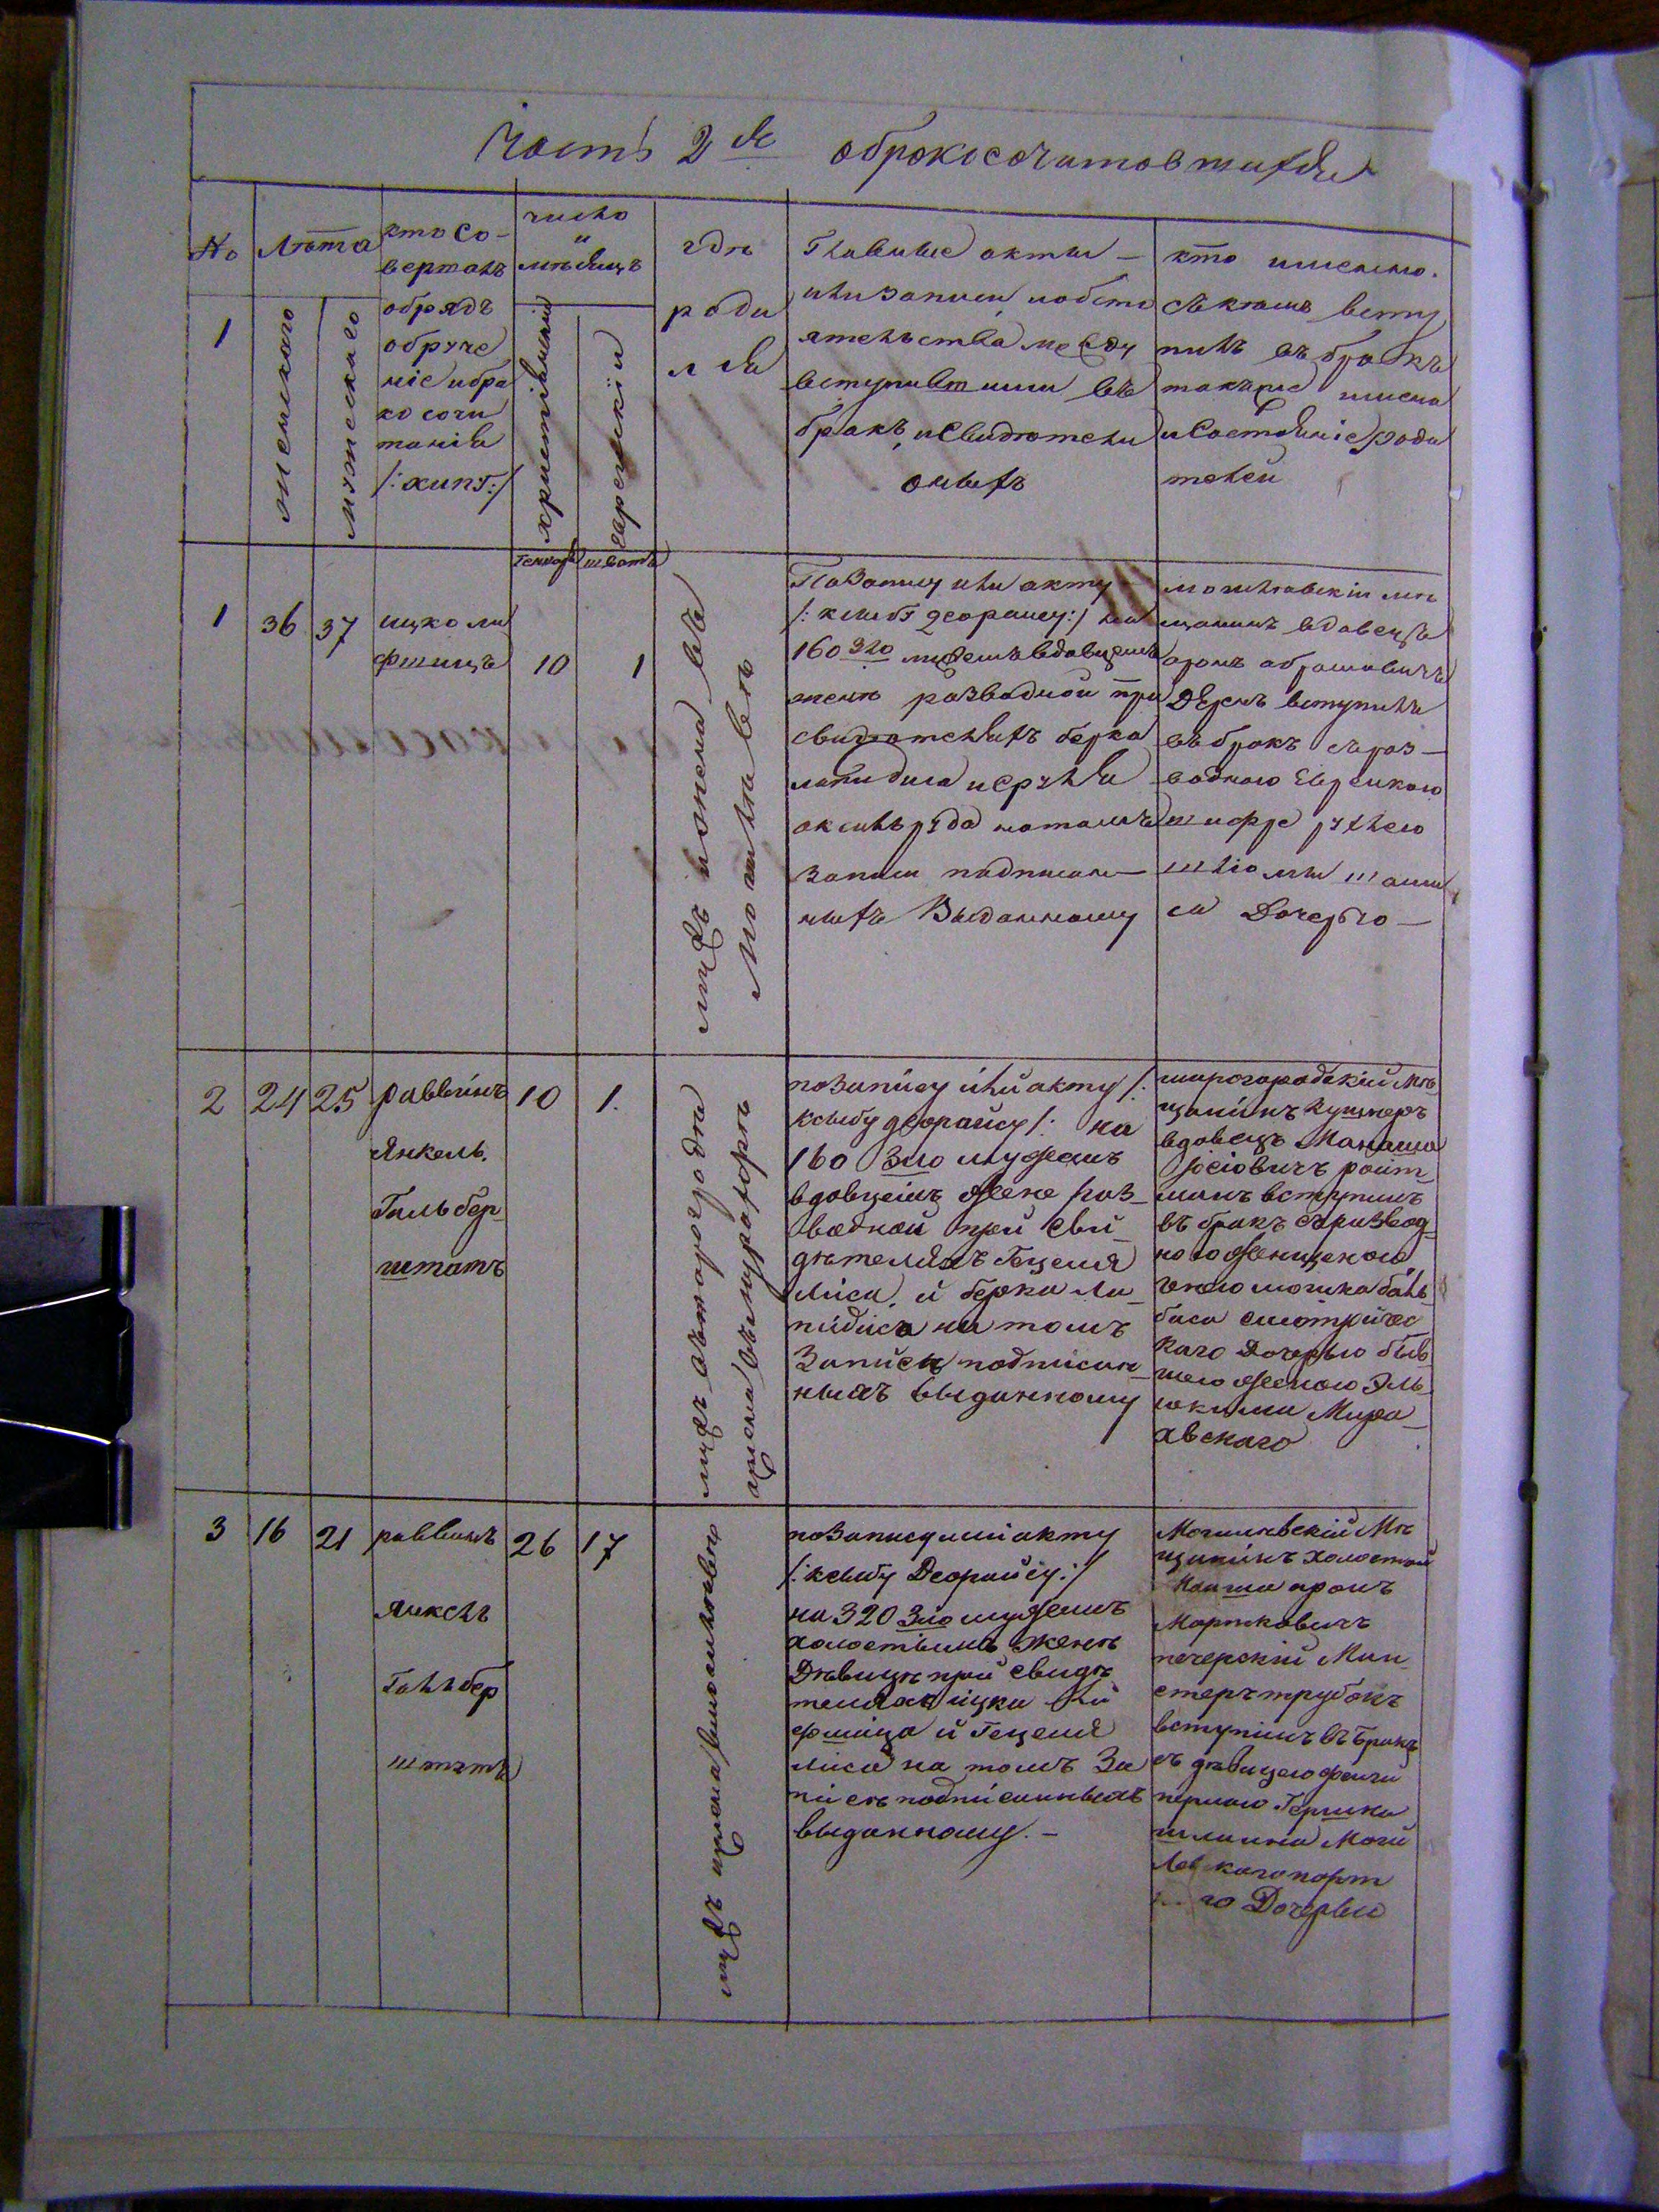 Часть 2 я о бракосочитавшихся
№ Лѣта
кто со-
вершалъ
обрядъ
обруче
ніе и бра
ко сочи
танія
/: хипу :/
число
и
мѣсяцъ
гдѣ
роди
лся
Главные акты -
или записи, и обсто
ятельства между
вступившими въ
бракъ, и свидѣтели
оныхъ
кто именно.
съ кемъ всту
пилъ въ бракъ
также имена
и состояніе роди
телей
1
женскаго
мужескаго
христіянскій
Еврейскій
Генварь шватъ
1 36 37
ицко ли
фшицъ
10 1
мужъ и жена въ
Могилевѣ
По записи или акту
/: ксыбу деорайсу :/ на
160 зло мужемъ вдовцемъ
жене разводной при
свидѣтеляхъ берка
лапидиса и
на томъ
записи подписан-
ныхъ Выданному
могилевскій мѣ
щанинъ вдовецъ
аронъ абрамовичъ
вступилъ
въ бракъ съ раз-
водною Еврейкою
Дочерью -
2 24 25
раввинъ
Янкель
Гальбер
штатъ
10 1.
мужъ въ шарогродѣ
жена въ мурахофѣ
по запису или акту /:
ксыбу деорайсу /: на
160 зло мужемъ
вдовцемъ жене раз-
водной при сви-
дѣтеляхъ Гецеля
лиса и берка ла-
пидиса на томъ
Записи подписан-
ныхъ выданному
шарогродскій мѣ
щанинъ Кушнеръ
вдовецъ Манаша
Іосіовичъ ройт-
манъ вступилъ
въ бракъ съ развод-
ною женщеною
мошка баль-
баса смотричес
каго Дочерью быв
шею женою Эль-
Мура
хвскаго
3 16 21
раввинъ
Янкель
Гальбер
штатъ
26 17
мужъ и жена въ могилевѣ
по запису или акту
/: ксыбу Деорайсу :/
на 320 зло мужемъ
холостымъ жене
Дѣвицѣ при свидѣ
теляхъ ицка ли
фшица и Гецеля
лиса на томъ За
писѣ подписанныхъ
выданному. -
Могилевскій Мѣ
щанинъ холостый
аронъ
Мортковичъ
печерскій Мин
стеръ трубокъ
вступилъ въ Бракъ
съ дѣвицею фейги
перлою Гершка
Моги
левскаго порт
го Дочерью